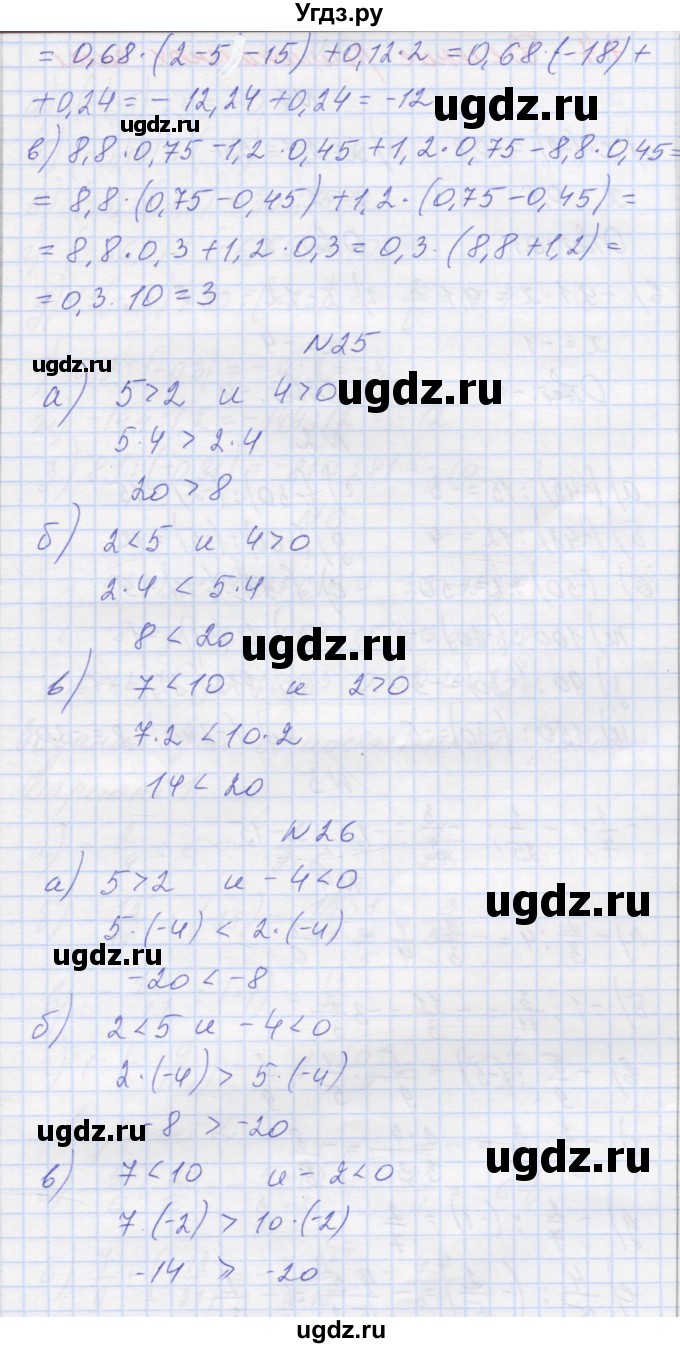 Угдз.ру
= 0,68 · (2 - 5 - 15) + 0,12 · 2 = 0,68 · (-18) +
+ 0,24 = - 12,24 + 0,24 = -12
ugdz.ru
ugdz.ru
в) 8,8 · 0,75 - 1,2 · 0,45 + 1,2 · 0,75 - 8,8 · 0,45 =
= 8,8 · (0,75 - 0,45) + 1,2 · (0,75 - 0,45) =
= 8,8 · 0,3 + 1,2 · 0,3 = 0,3 · (8,8 + 1,2) =
= 0,3 · 10 = 3
N25
ugdz.ru
а) 5 > 2 и 4 > 0
ugdz.ru
5 · 4 > 2 · 4
20 > 8
б) 2 < 5 и 4 > 0
2 · 4 < 5 · 4
8 < 20
ugdz.ru
в) 7 < 10 и 2 > 0
7 · 2 < 10 · 2
14 < 20
N26
а) 5 > 2 и - 4 < 0
ugdz.ru
5 · (-4) < 2 · (-4)
ugdz.ru
-20 < -8
б) 2 < 5 и - 4 < 0
2 · (-4) > 5 · (-4)
ugdz.ru
-8 > -20
ugdz.ru
в) 7 < 10 и - 2 < 0
7 · (-2) > 10 · (-2)
-14 > -20
ugdz.ru